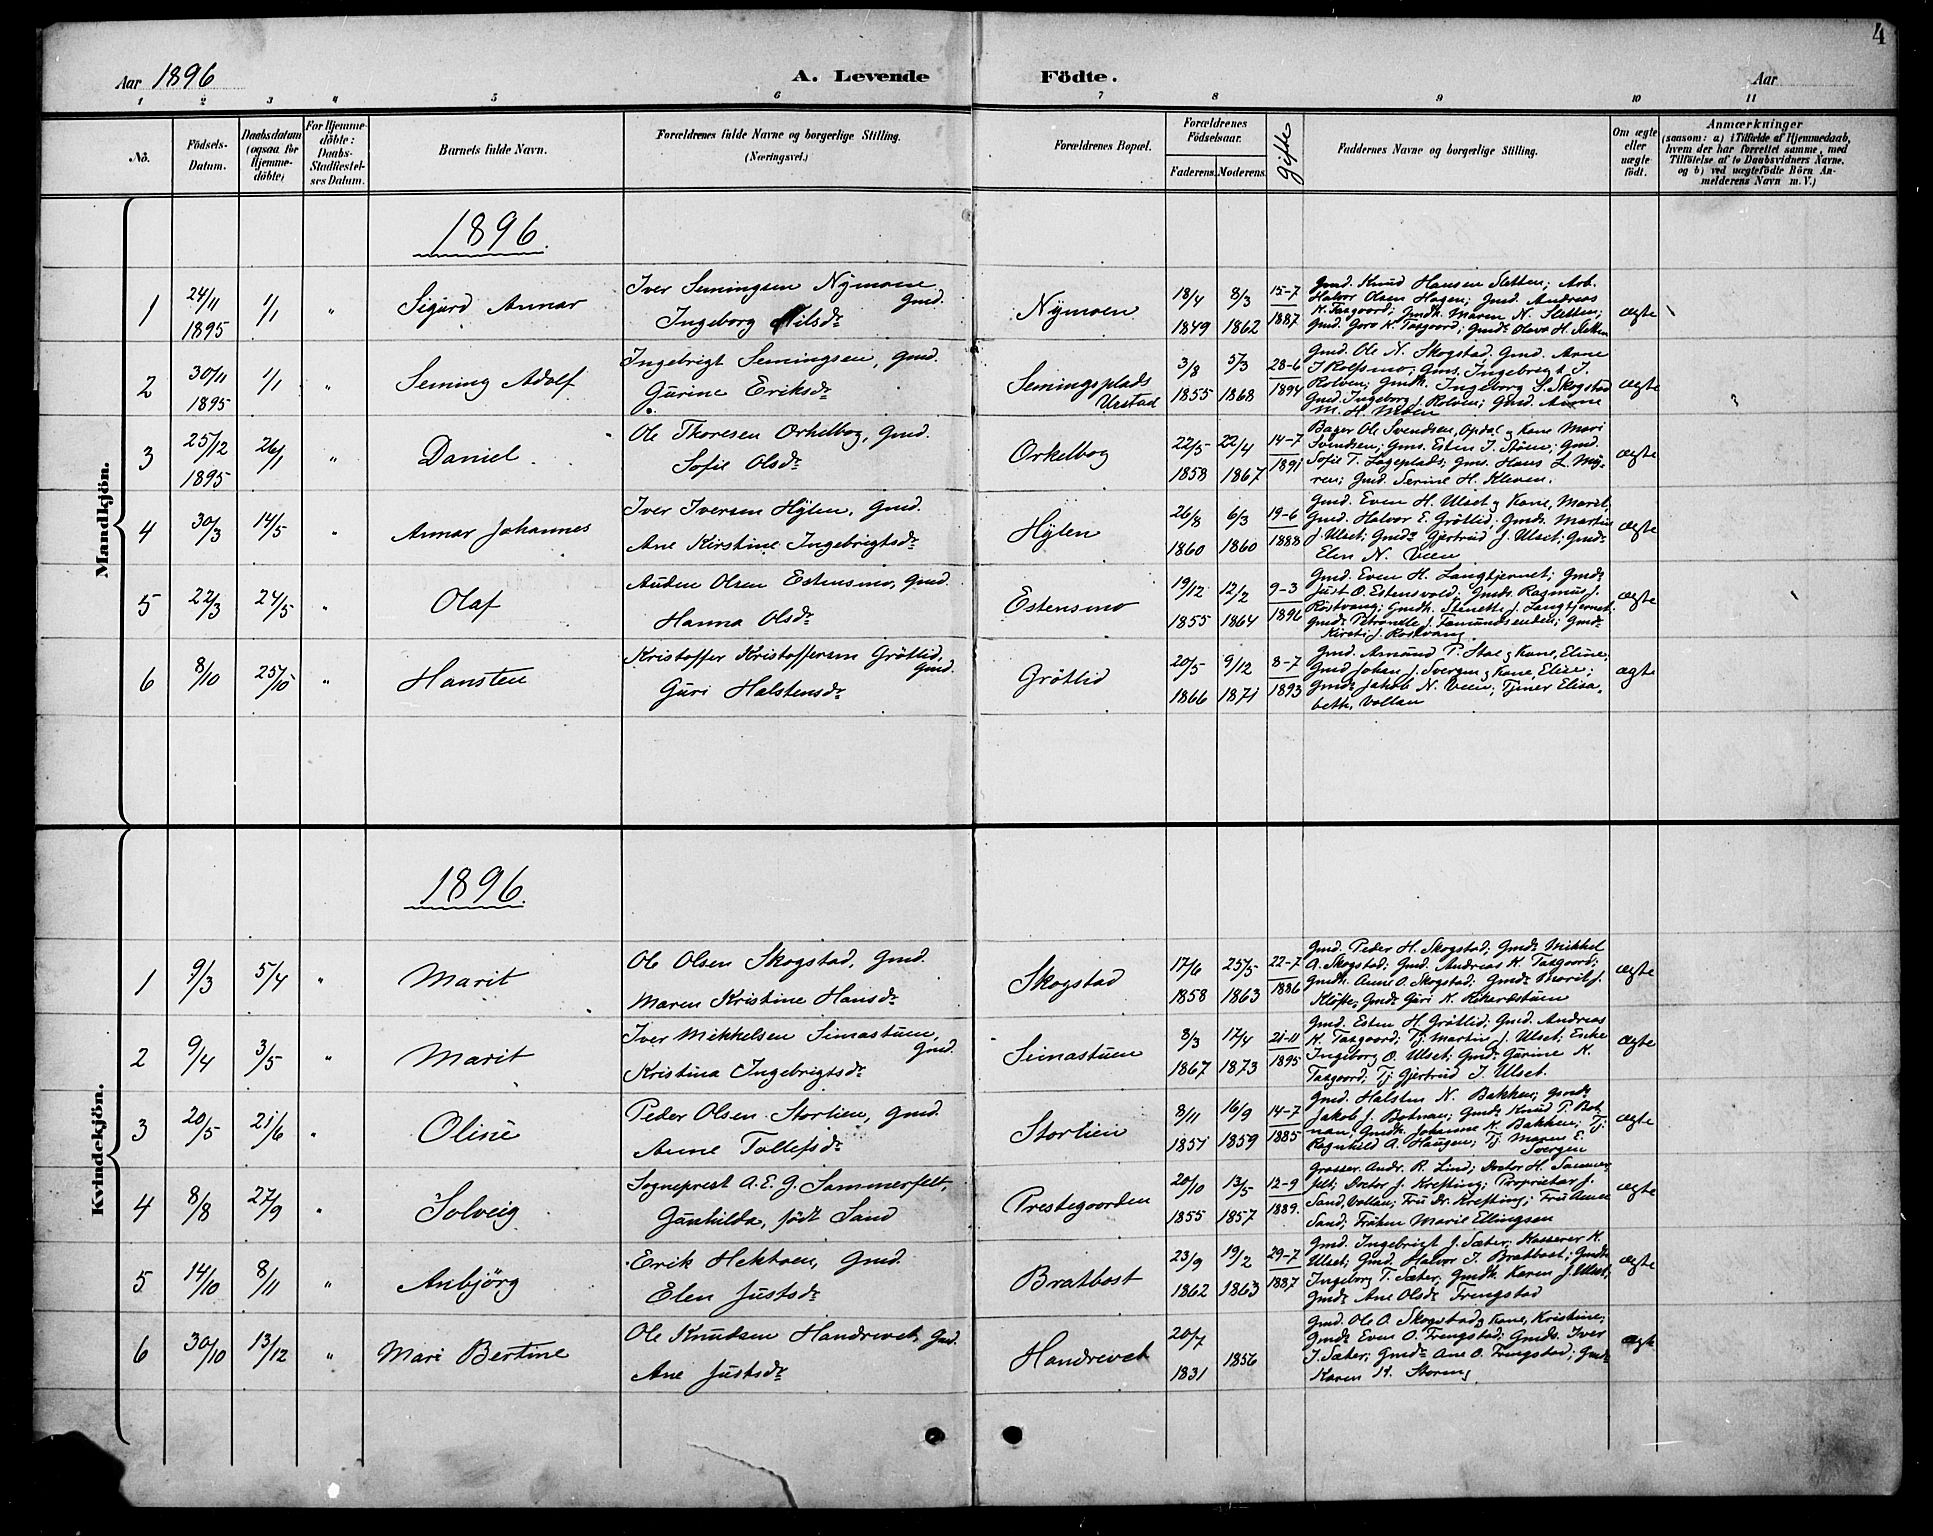 4
Aar 1896 A. Levende Födte. Aar
1 2 3 4 5 6 7 8 9 10 11
No.
Födsels-
Datum.
Daabsdatum
(ogsaa for
Hjemme-
döbte)
For Hjemme-
döbte:
Daabs-
Stadfæstel-
ses Datum.
Barnets fulde Navn.
Forældrenes fulde Navne og borgerlige Stilling.
(Næringsvei.)
Forældrenes Bopæl.
Forældrenes
Födselsaar.
Faderens. Moderens.
Gifte
Faddernes Navne og borgerlige Stilling.
Om ægte
eller
uægte
født.
Anmærkninger
(saasom: a) i Tilfælde af Hjemmedaab,
hvem der har forrettet samme, med
Tilföielse af to Daabsvidners Navne,
og b) ved uægtefödte Börn An-
melderens Navn m. V.)
Mandkjön.
1896.
1 24/11 1895 1/1 " Sigurd Annar
Iver Semingsen Nÿmoen
Gmd.
Ingeborg Nilsdr
Nÿmoen
18/4 1849 8/3 1862 15-7 1887
Gmd. Knud Hansen Sletten; Arb.
Halvor Olsen Hagen; Gmd. Andreas
K. Taagaard; Gmdk. Maren N. Sletten;
Gmd. Goro K. Taagaard; Gmdtr Olava H. Sletten
ægte
2 30/11 1895 1/1 " Seming Adolf
Ingebrigt Semingsen, Gmd.
Gurine Eriksdr
Semingsplads
Urstad
3/8 1855 5/3 1868 28-6 1894
Gmd. Ole N. Skogstad; Gmd. Arne
J. Rolfsmo; Gms. Ingebregt J.
Rolven; Gmdk. Ingeborg S. Skogstad
Gmd. Ingeborg J. Rolven; Gmd. Anne
M. H. Moen
ægte
3 25/12 1895 26/1 " Daniel
Ole Thoresen Orkelbog, Gmd.
Sofie Olsdr
Orkelbog
22/5 1858 22/4 1867 14-7 1891
Bager Ole Svendsen, Opdal og Kone Mari
Svendsen; Gms. Esten J. Støen; Gmd.
Sofie T. Lageplads; Gms. Hans L. Mÿ-
ren; Gmd. Serine H. Kleven.
ægte
4 30/3 14/5 " Annar Johannes
Iver Iversen Hÿlen, Gmd.
Ane Kirstine Ingebrigtsdr
Hÿlen
26/8 1860 6/3 1860 19-6 1888
Gmd. Even H. Ulset og Kone, Maret,
Gmd. Halvor E. Grøtlid; Gmds. Martin
J. Ulset; Gmdr Gjertrud J. Ulset; Gmdr
Elen N. Veen
ægte
5 22/3 24/5 " Olaf
Auden Olsen Estensmo, Gmd.
Hanna Olsdr
Estensmo
19/12 1855 12/2 1864 9-3 1896
Gmd. Even H. Langtjernet; Gmds
Just O. Estensvold; Gmds. Rasmus J.
Röstvang; Gmdk. Stenette J. Langtjernet
Gmdr Petronelle J. Tamundsenden; Gmdr
Kirsti J. Rostvang
ægte
6 8/10 25/10 " Hansten
Kristoffer Kristoffersen Grötlid,
Gmd.
Guri Halstensdr
Grötlid
20/5 1866 9/12 1871 8-7 1893
Gmd. Amund P. Stai og Kone, Eline;
Gmd Johan J. Svergen og Kone, Elise;
Gmds Jakob N. Veen; Tjener Elisa-
beth, Vollan
ægte
Kvindekjön.
1896.
1 9/3 5/4 " Marit
Ole Olsen Skogstad, Gmd.
Maren Kristine Hansdr
Skogstad
17/6 1858 25/5 1863 22-7 1886
Gmd. Peder H. Skogstad; Gmds Mikkel
A. Skogstad; Gmd. Andreas K. Taagaard;
Gmdk. Anne O. Skogstad; Gmdr Marit J.
Kløfte; Gmdr Guri K. Rekardstuen
ægte
2 9/4 3/5 " Marit
Iver Mikkelsen Simastuen,
Gmd.
Kristina Ingebrigtsdr
Simastuen
8/3 1867 17/4 1873 21-11 1895
Gmd. Esten H. Grøtlid; Gmd. Andreas
K. Taagaard; Tj. Martin J. Ulset; Enke
Ingeborg O. Ulset; Gmdr Gurine K.
Taagaard; Tj. Gjertrud J. Ulset.
ægte
3 20/5 21/6 " Oline
Peder Olsen Storlien, Gmd.
Anne Tollefsdr
Storlien
8/11 1857 16/9 1859 14-7 1885
Gmd. Halsten N. Bakken; Gmds
Jakob J. Botnan; Gmds Knud P. Bot-
nan; Gmdk. Johanne K. Bakken; Tj.
Ragnhild A. Haugen; Tj. Maren E.
Svergen
ægte
4 8/8 27/9 " Solveig
Sogneprest A. E. G. Sommerfelt,
Gunhilda, født Sand
Prestegaarden
20/10 1855 13/5 1857 12-9 1889.
Grosser. Andr. R. Lind; Doctor H. Sommer-
felt; Doctor J. Krefting; Proprietær J.
Sand, Vollan; Fru Dr. Krefting; Fru Anne
Sand; Frøken Marie Ellingsen
ægte
5 14/10 8/11 " Anbjörg
Erik Hektoen, Gmd.
Elen Justsdr
Bratbost
23/9 1862 19/2 1863 29-7 1887
Gmd. Ingebrigt J. Sæter; Kasserer K.
Ulset; Gmd. Halvor J. Bratbost; Gmdk
Ingeborg T. Sæter; Gmdk. Karen J. Ulset;
Gmdr Ane Olsdr Frengstad
ægte
6 30/10 13/12 " Mari Bertine
Ole Knudsen Handrevet, Gmd.
Ane Justsdr
Handrevet
20/7 1831 1856
Gmd. Ole O. Skogstad og Kone, Kristine;
Gmds Even O. Frengstad; Gmds. Iver
J. Sæter; Gmdr Ane O. Frengstad; Gmdr
Karen K. Storeng
ægte